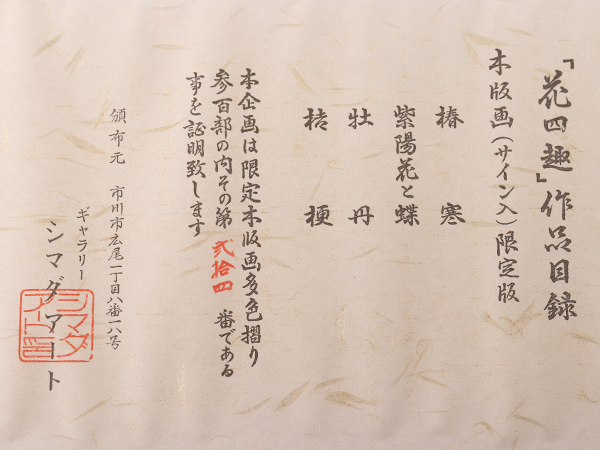 「花四趣」作品目録
木版画(サイン入)限定版
寒椿
紫陽花と蝶
牡丹
桔梗
本企画は限定木版画多色摺り
参百部の内その第 弐拾四 番である
事を証明致します
頒布元 市川市広尾一丁目八番一八号
ギャラリー
シマダアート
シマダ
アート